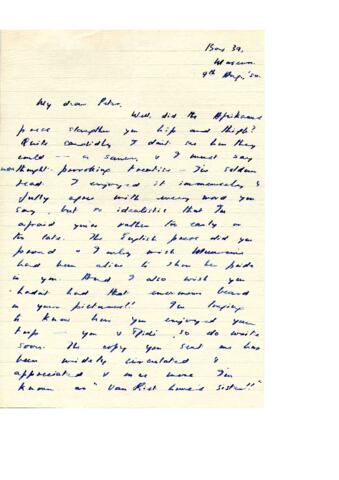 Box 39,
Maseru.
9th Aug, '50.
My dear Peter,
Well, did the Afrikaans
press slaughter you hip and thigh?
Quite candidly I don't see how they
could — a saner, & I must say
thought-provoking treatise — I've seldom
read. I enjoyed it immensely &
fully agree with every word you
say, but so idealistic that I'm
afraid you're rather too early or
too late. The English press did you
proud & I only wish
had been alive to show her pride
in you. And I also wish you
hadn't had that enormous beard
in your pictures!! I'm longing
to know how you enjoyed your
trip — you & so do write
soon. The copy you sent me has
been widely circulated &
appreciated & once more I'm
known as "Van Riet Lowe's sister!!"